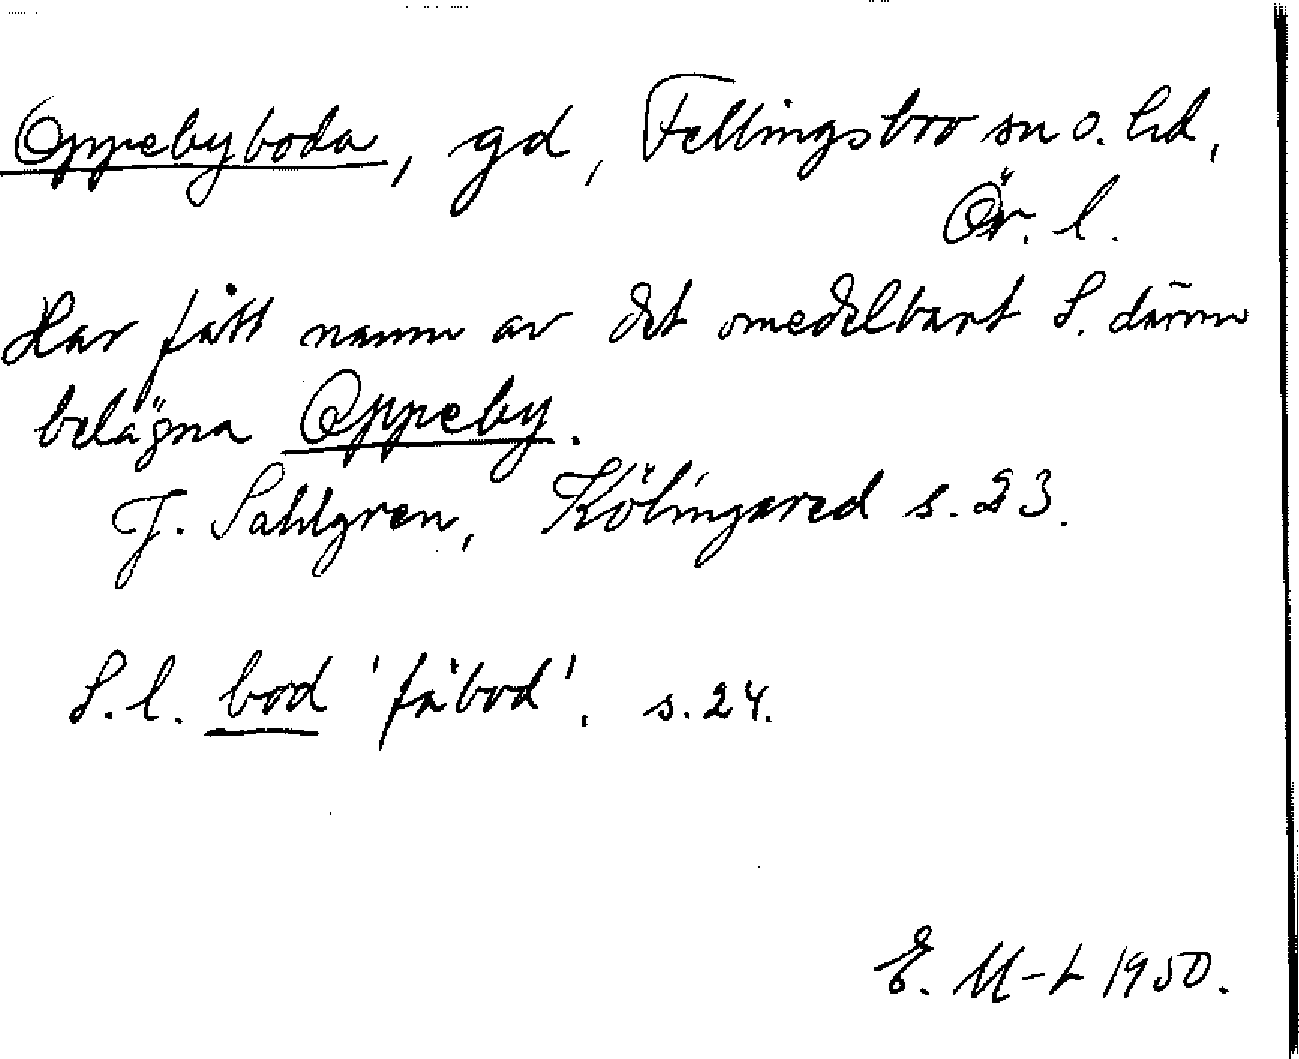 Oppebyboda, gd, Fellingsbro sn o. hd,
Ör. l.
Har fått namn av det omedelbart S. därom
belägna Oppeby.
J. Sahlgren, Kölingared s. 23.
S. l. bod 'fäbod'. s. 24.
E. M-L 1950.